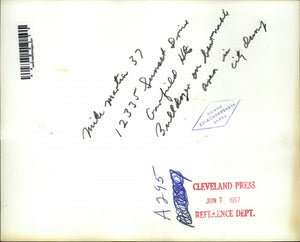 Mike Martin 37
12335 Sunset Drive
Garfield Hts
Bulldozer on
area in
city dump
A295
CLEVELAND PRESS
JUN 7 1967
REFERENCE DEPT.